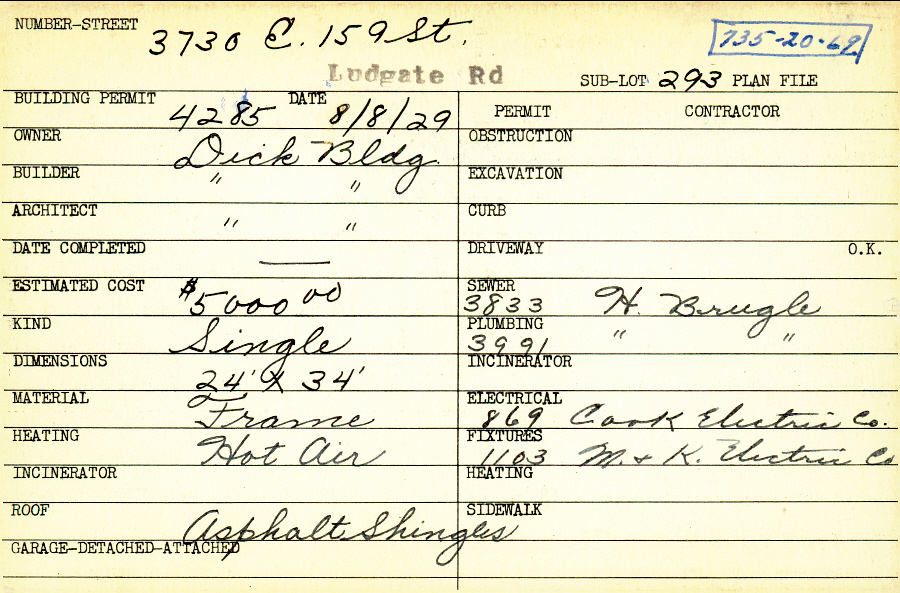 NUMBER-STREET 3730 E. 159 St. 735-20-69
Ludgate Rd SUB-LOT 293 PLAN FILE
BUILDING PERMIT 4285 DATE 8/8/29 PERMIT CONTRACTOR
OWNER Dick Bldg. OBSTRUCTION
BUILDER " " EXCAVATION
ARCHITECT " " CURB
DATE COMPLETED — DRIVEWAY O.K.
ESTIMATED COST $5000 00 SEWER 3833 H. Brugle
KIND Single PLUMBING 3991 " "
DIMENSIONS 24' X 34' INCINERATOR
MATERIAL Frame ELECTRICAL 869 Cook Electric Co.
HEATING Hot Air FIXTURES 1103 M. & K. Electric Co
INCINERATOR HEATING
ROOF Asphalt Shingles SIDEWALK
GARAGE-DETACHED-ATTACHED